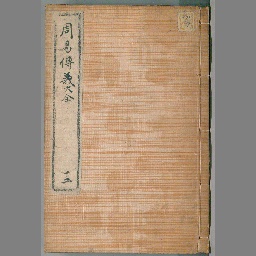 周易傳義大全
十五